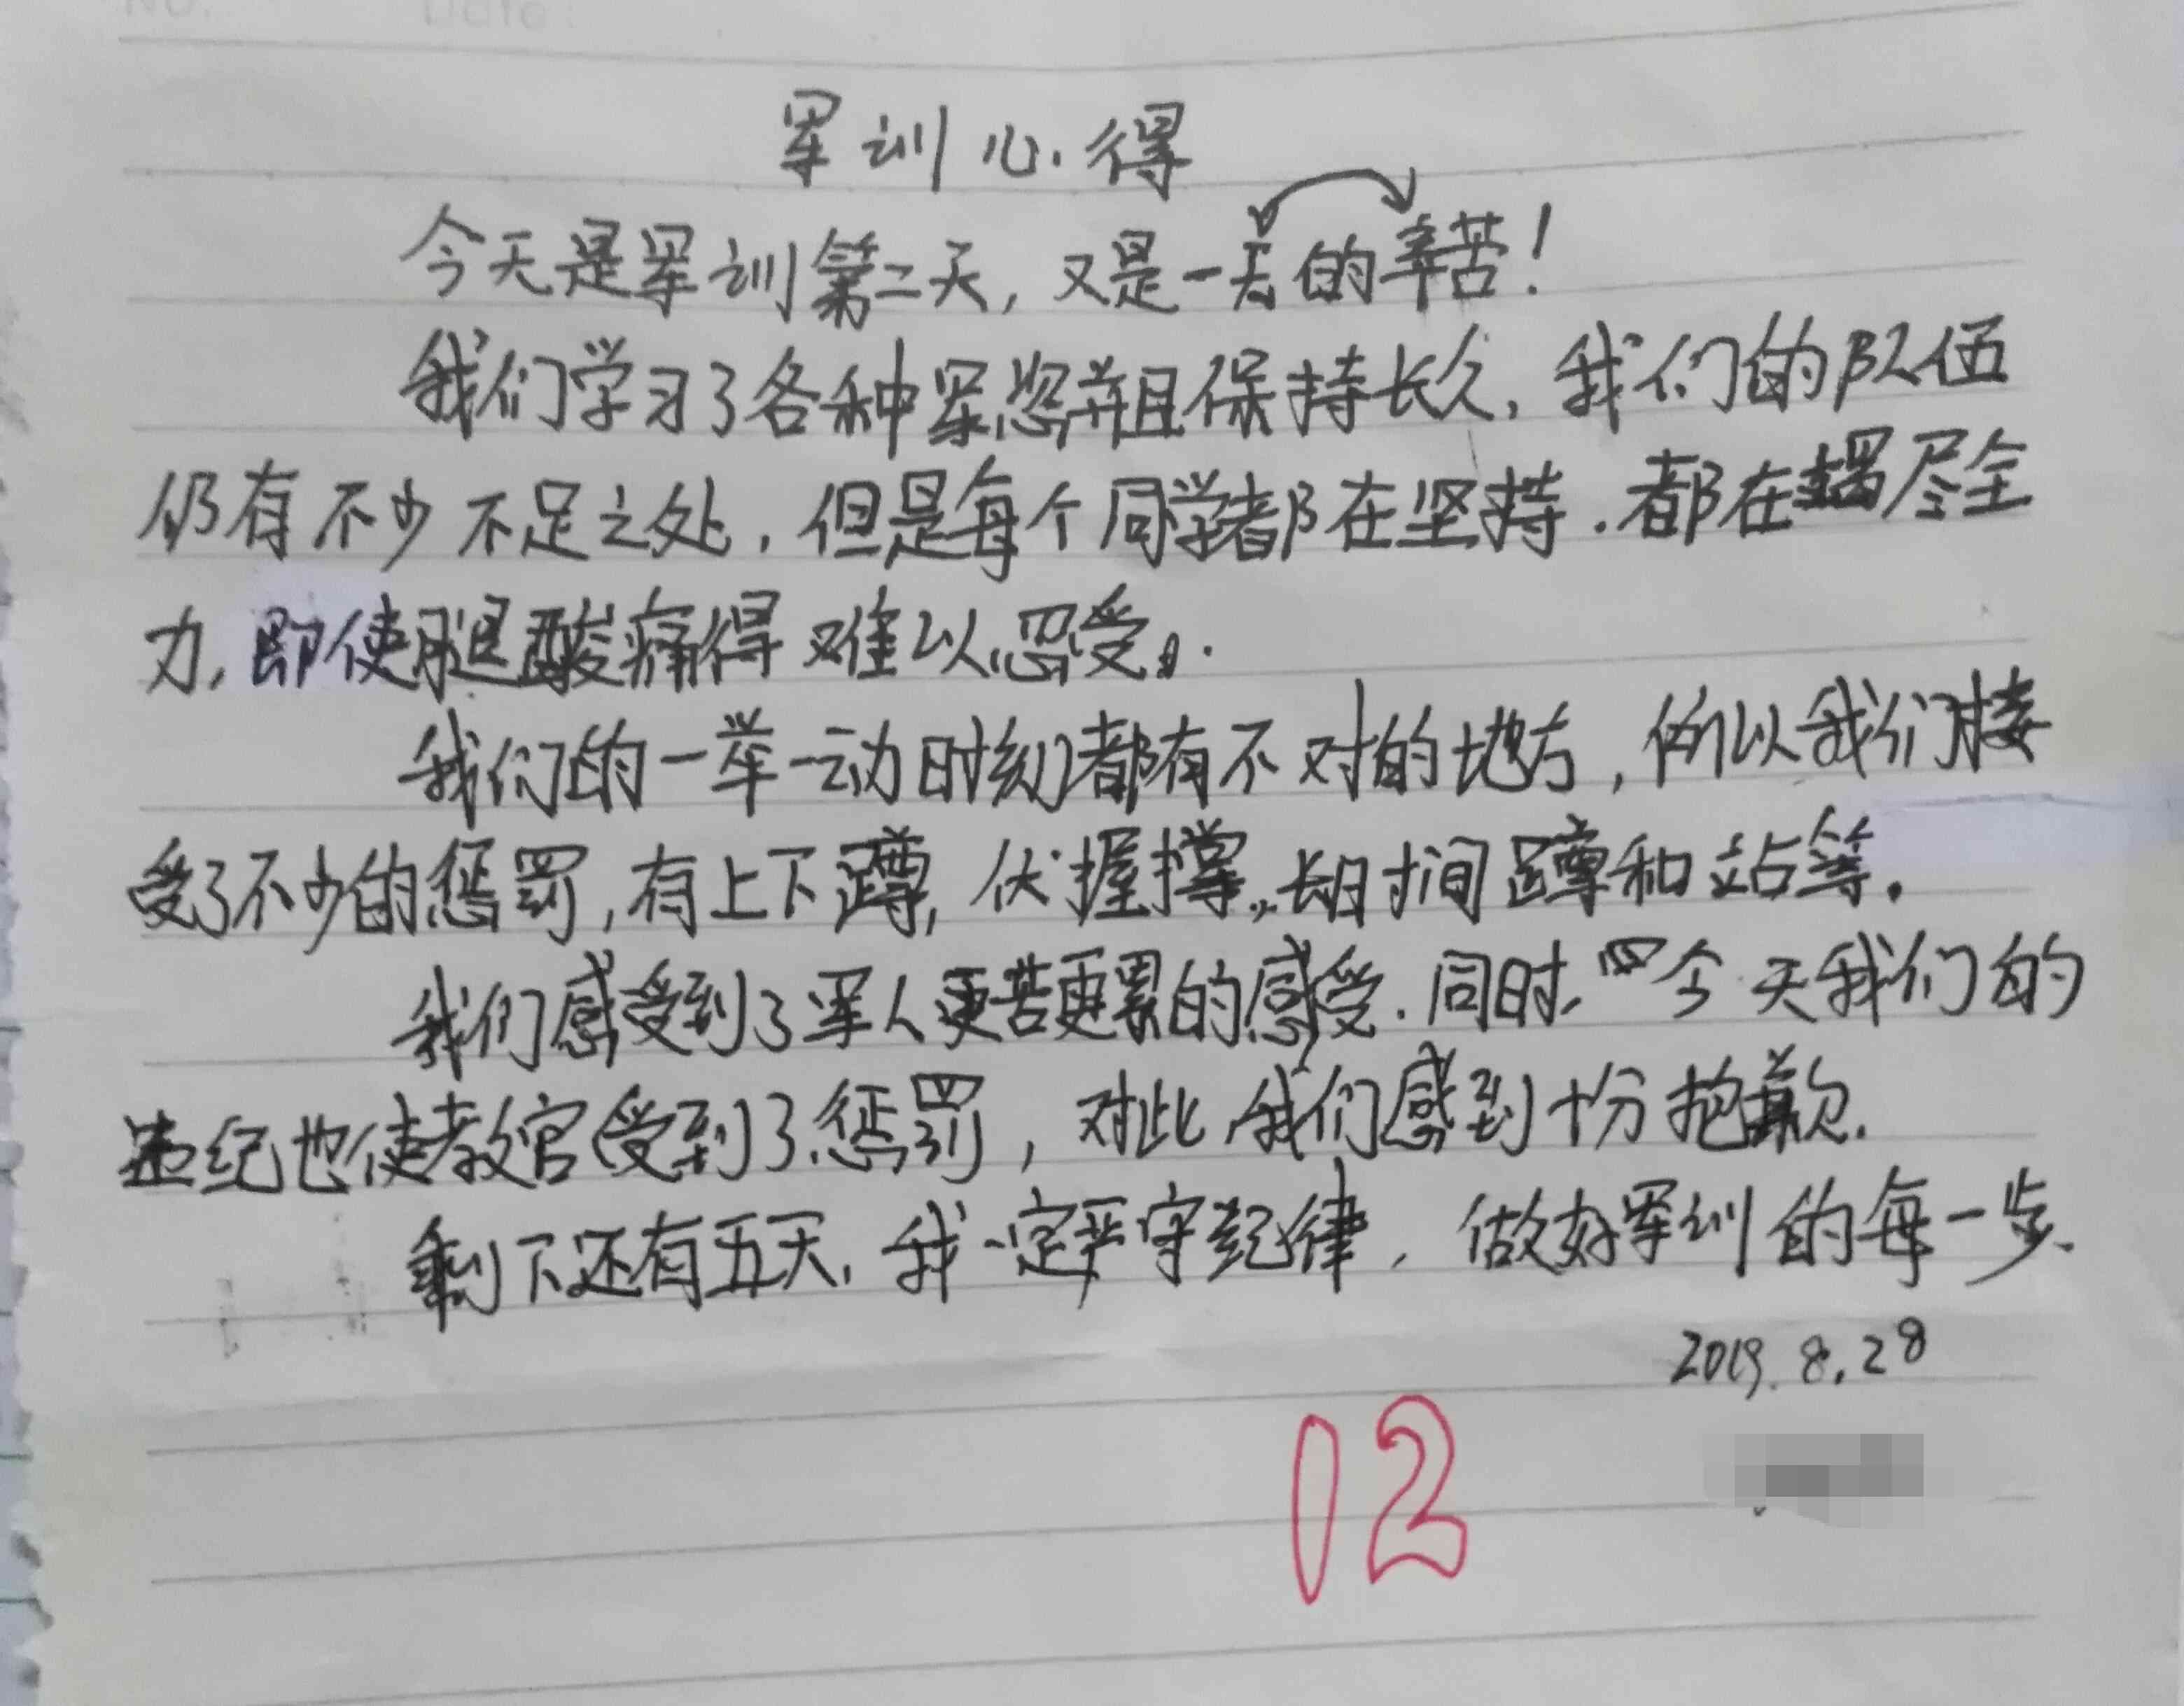 No. Date:
军训心得
今天是军训第二天，又是一天的辛苦！
我们学习了各种军姿并且保持长久，我们的队伍
仍有不少不足之处，但是每个同学都在坚持.都在竭尽全
力，即使腿酸痛得难以忍受.
我们的一举一动时刻都有不对的地方，所以我们接
受了不少的惩罚，有上下蹲，伏握撑，长时间蹲和站等.
我们感受到了军人更苦更累的感受.同时，今天我们的
违纪也使教官受到了惩罚，对此我们感到十分抱歉.
剩下还有五天，我一定严守纪律，做好军训的每一步.
2019.8.28
12